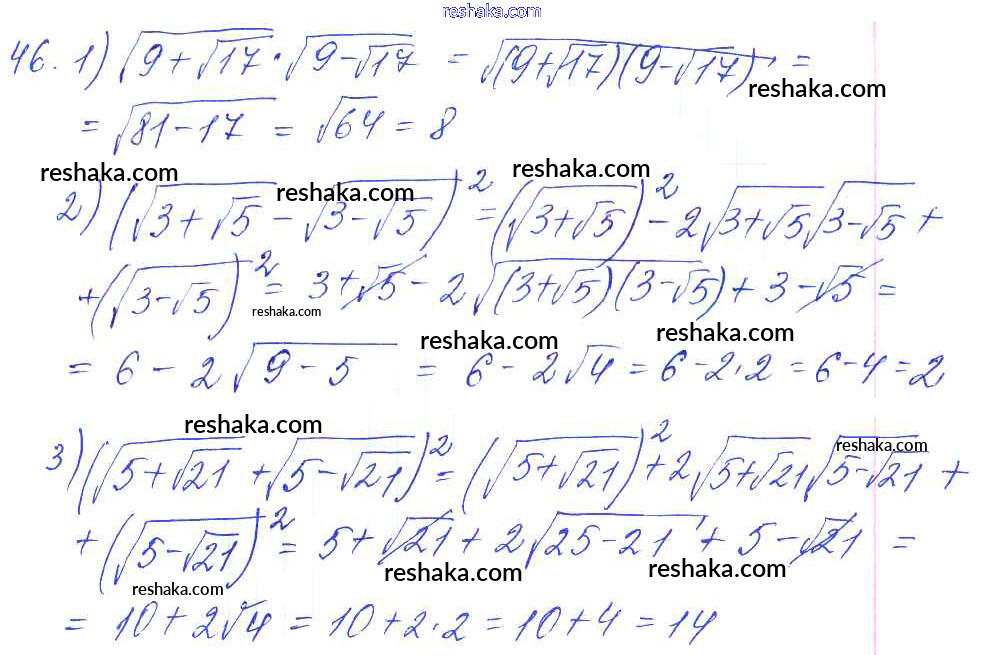 reshaka.com
46. 1) √(9+√17) · √(9-√17) = √((9+√17)(9-√17)) =
reshaka.com
= √(81-17) = √64 = 8
reshaka.com reshaka.com reshaka.com
2) (√(3+√5) - √(3-√5))² = (√(3+√5))² - 2√(3+√5)√(3-√5) +
+ (√(3-√5))² = 3+√5 - 2√((3+√5)(3-√5)) + 3-√5 =
reshaka.com reshaka.com reshaka.com
= 6 - 2√(9-5) = 6 - 2√4 = 6-2·2 = 6-4 = 2
reshaka.com reshaka.com
3) (√(5+√21) + √(5-√21))² = (√(5+√21))² + 2√(5+√21)√(5-√21) +
+ (√(5-√21))² = 5+√21 + 2√(25-21) + 5-√21 =
reshaka.com reshaka.com reshaka.com
= 10+2√4 = 10+2·2 = 10+4 = 14